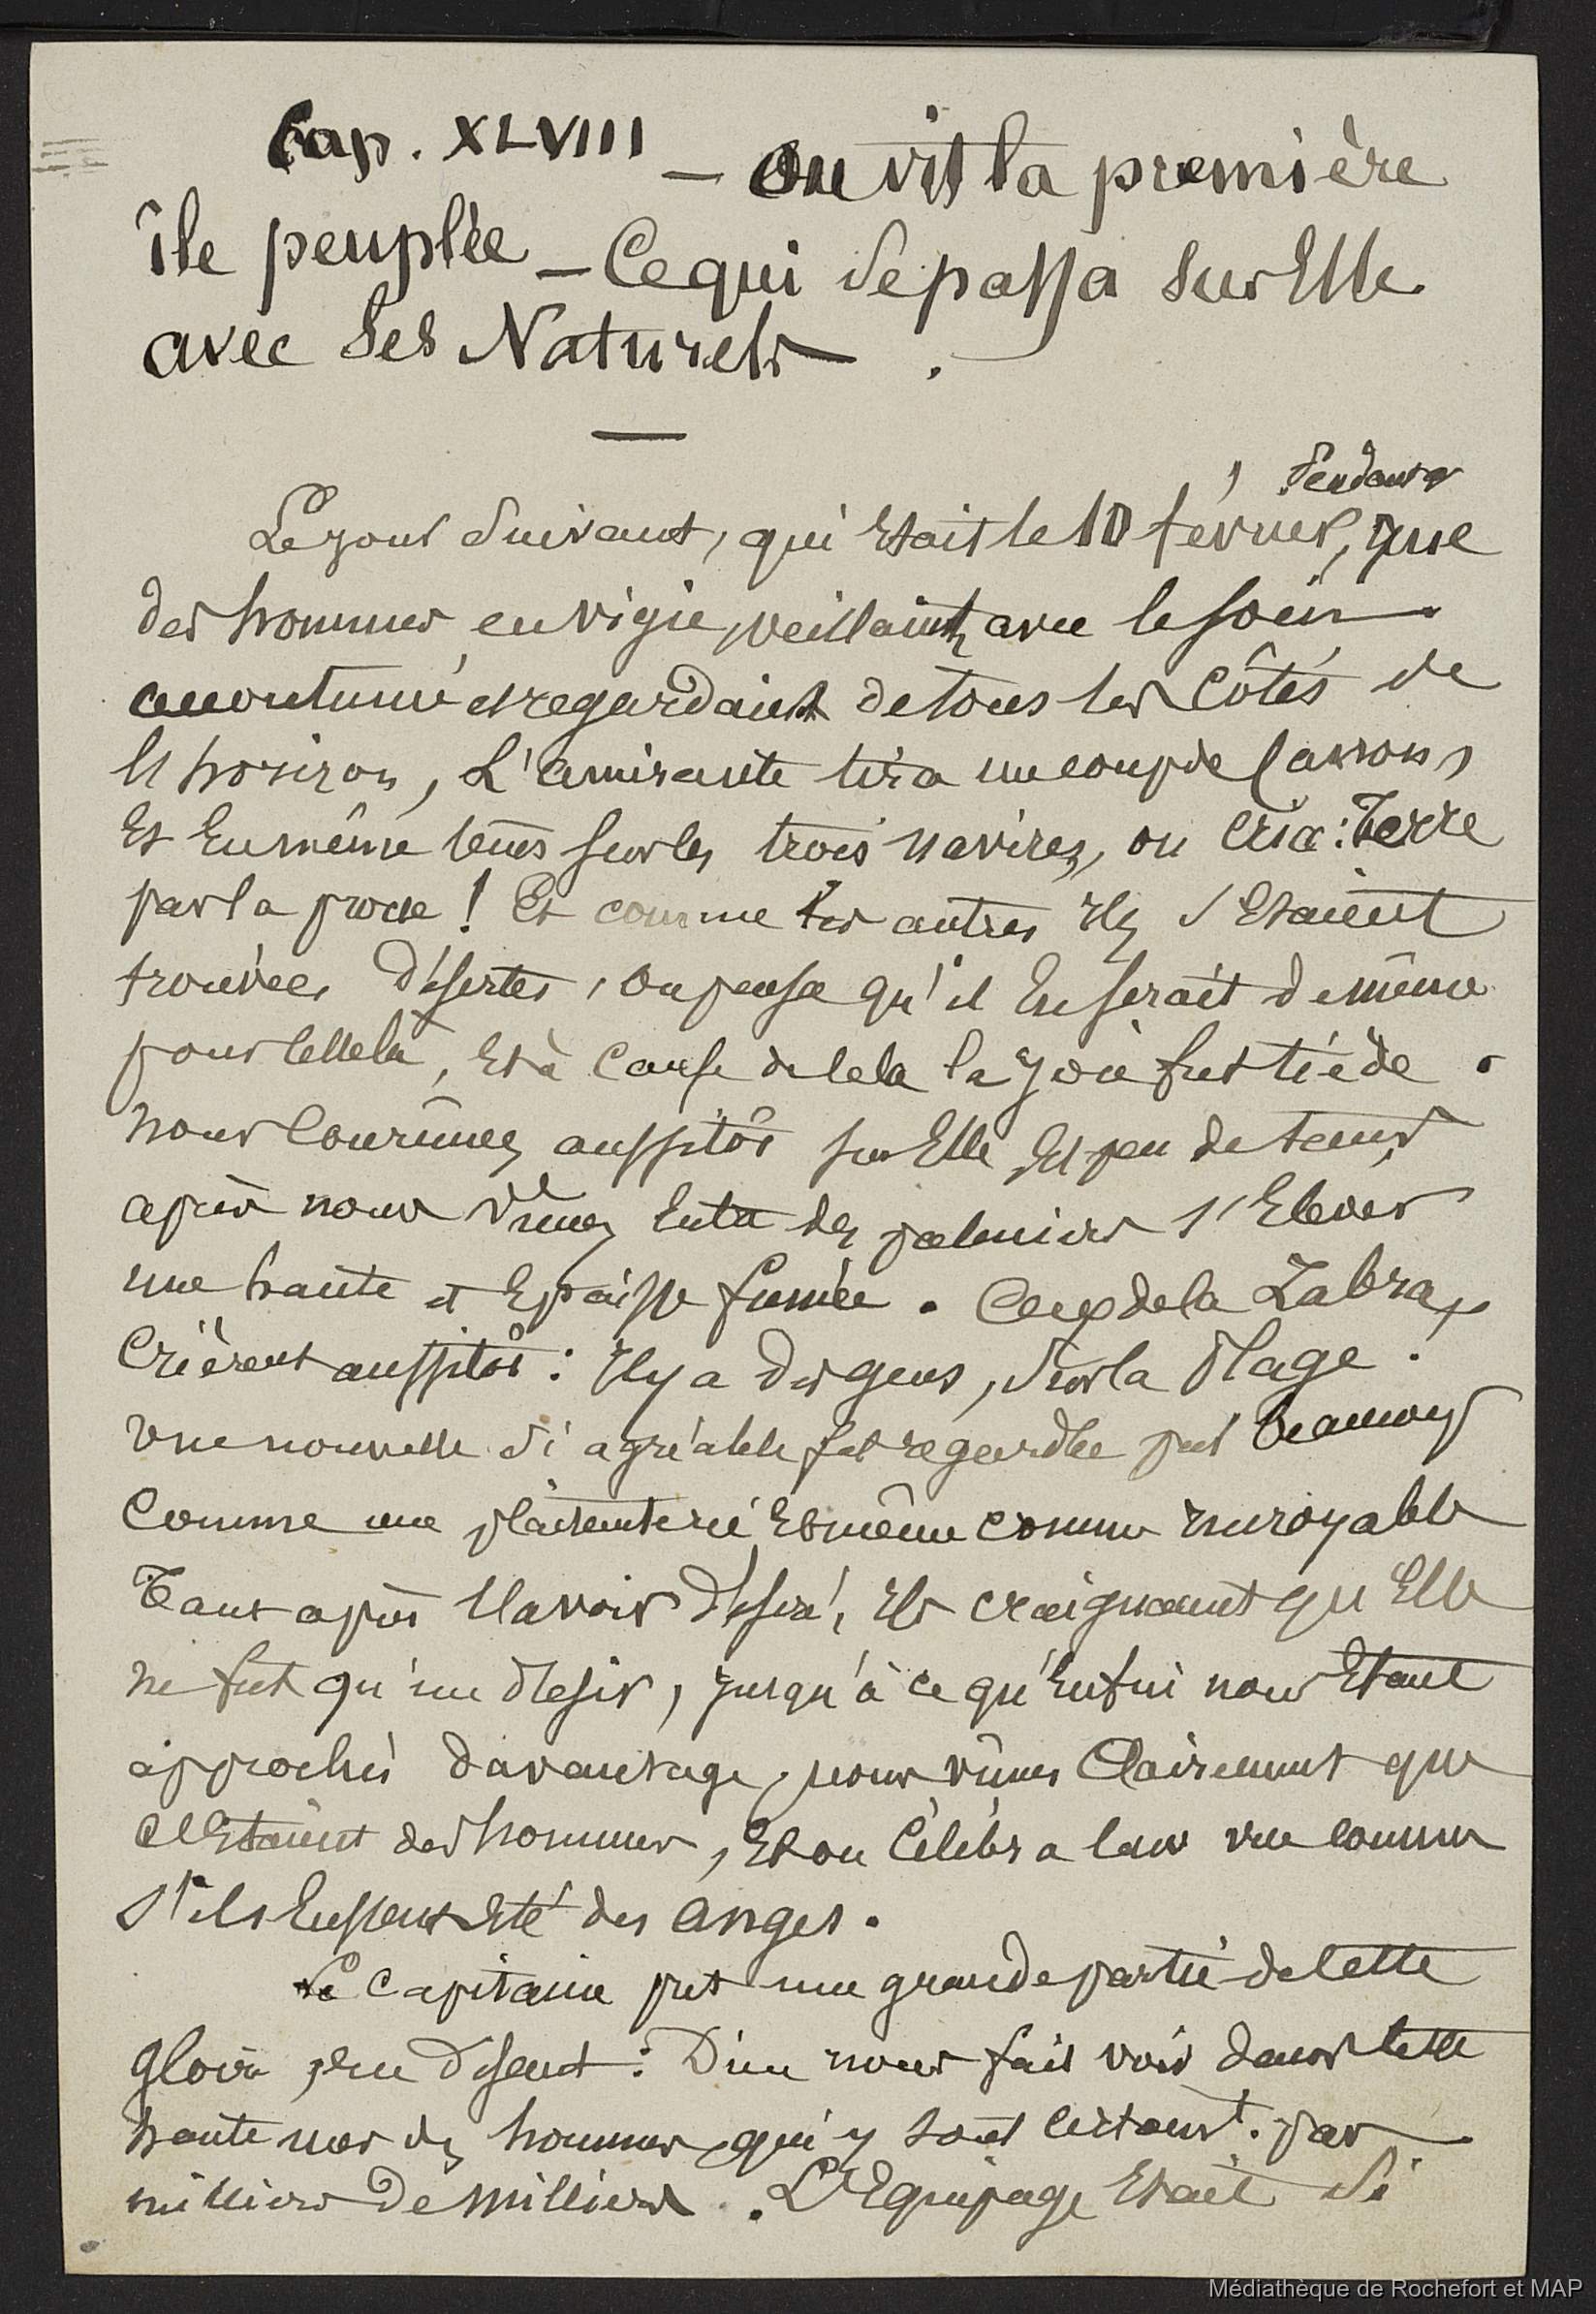 Cap. XLVIII — On vit la première
île peuplée — Ce qui se passa sur Elle
avec ses Naturels.
pendant
Le jour suivant, qui Etait le 10 février, que
des hommes en vigie, veillaient avec le soin
accoutumé et regardaient de tous les côtés de
l'horizon, L'amirante tira un coup de canon,
Et En même tems sur les trois navires, on cria : Terre
par la proue ! Et comme les autres îles s'Etaient
trouvées désertes, on pensa qu'il En serait de même
pour celle là, Et à cause de cela la joie fut tiède.
nous courûmes aussitôt sur Elle Et peu de tems
après nous vîmes Entre des palmiers s'Elever
une haute et Epaisse fumée. Ceux de la Zabra,
crièrent aussitôt : Il y a des gens, sur la plage !
Une nouvelle si agréable fut regardée par beaucoup
comme une plaisanterie Et même comme incroyable
Tant après l'avoir désiré, Et craignant qu'Elle
ne fut qu'un désir, jusqu'à ce qu'Enfin nous Etant
approchés davantage, nous vîmes clairement que
c'Etaient des hommes, Et on célébra leur vue comme
s'ils Eussent Eté des anges.
Le Capitaine prit une grande partie de cette
gloire, En disant : Dieu nous fait voir dans cette
haute mer des hommes, qui y sont certaint. par
milliers de milliers. L'Equipage Etait si
Médiathèque de Rochefort et MAP